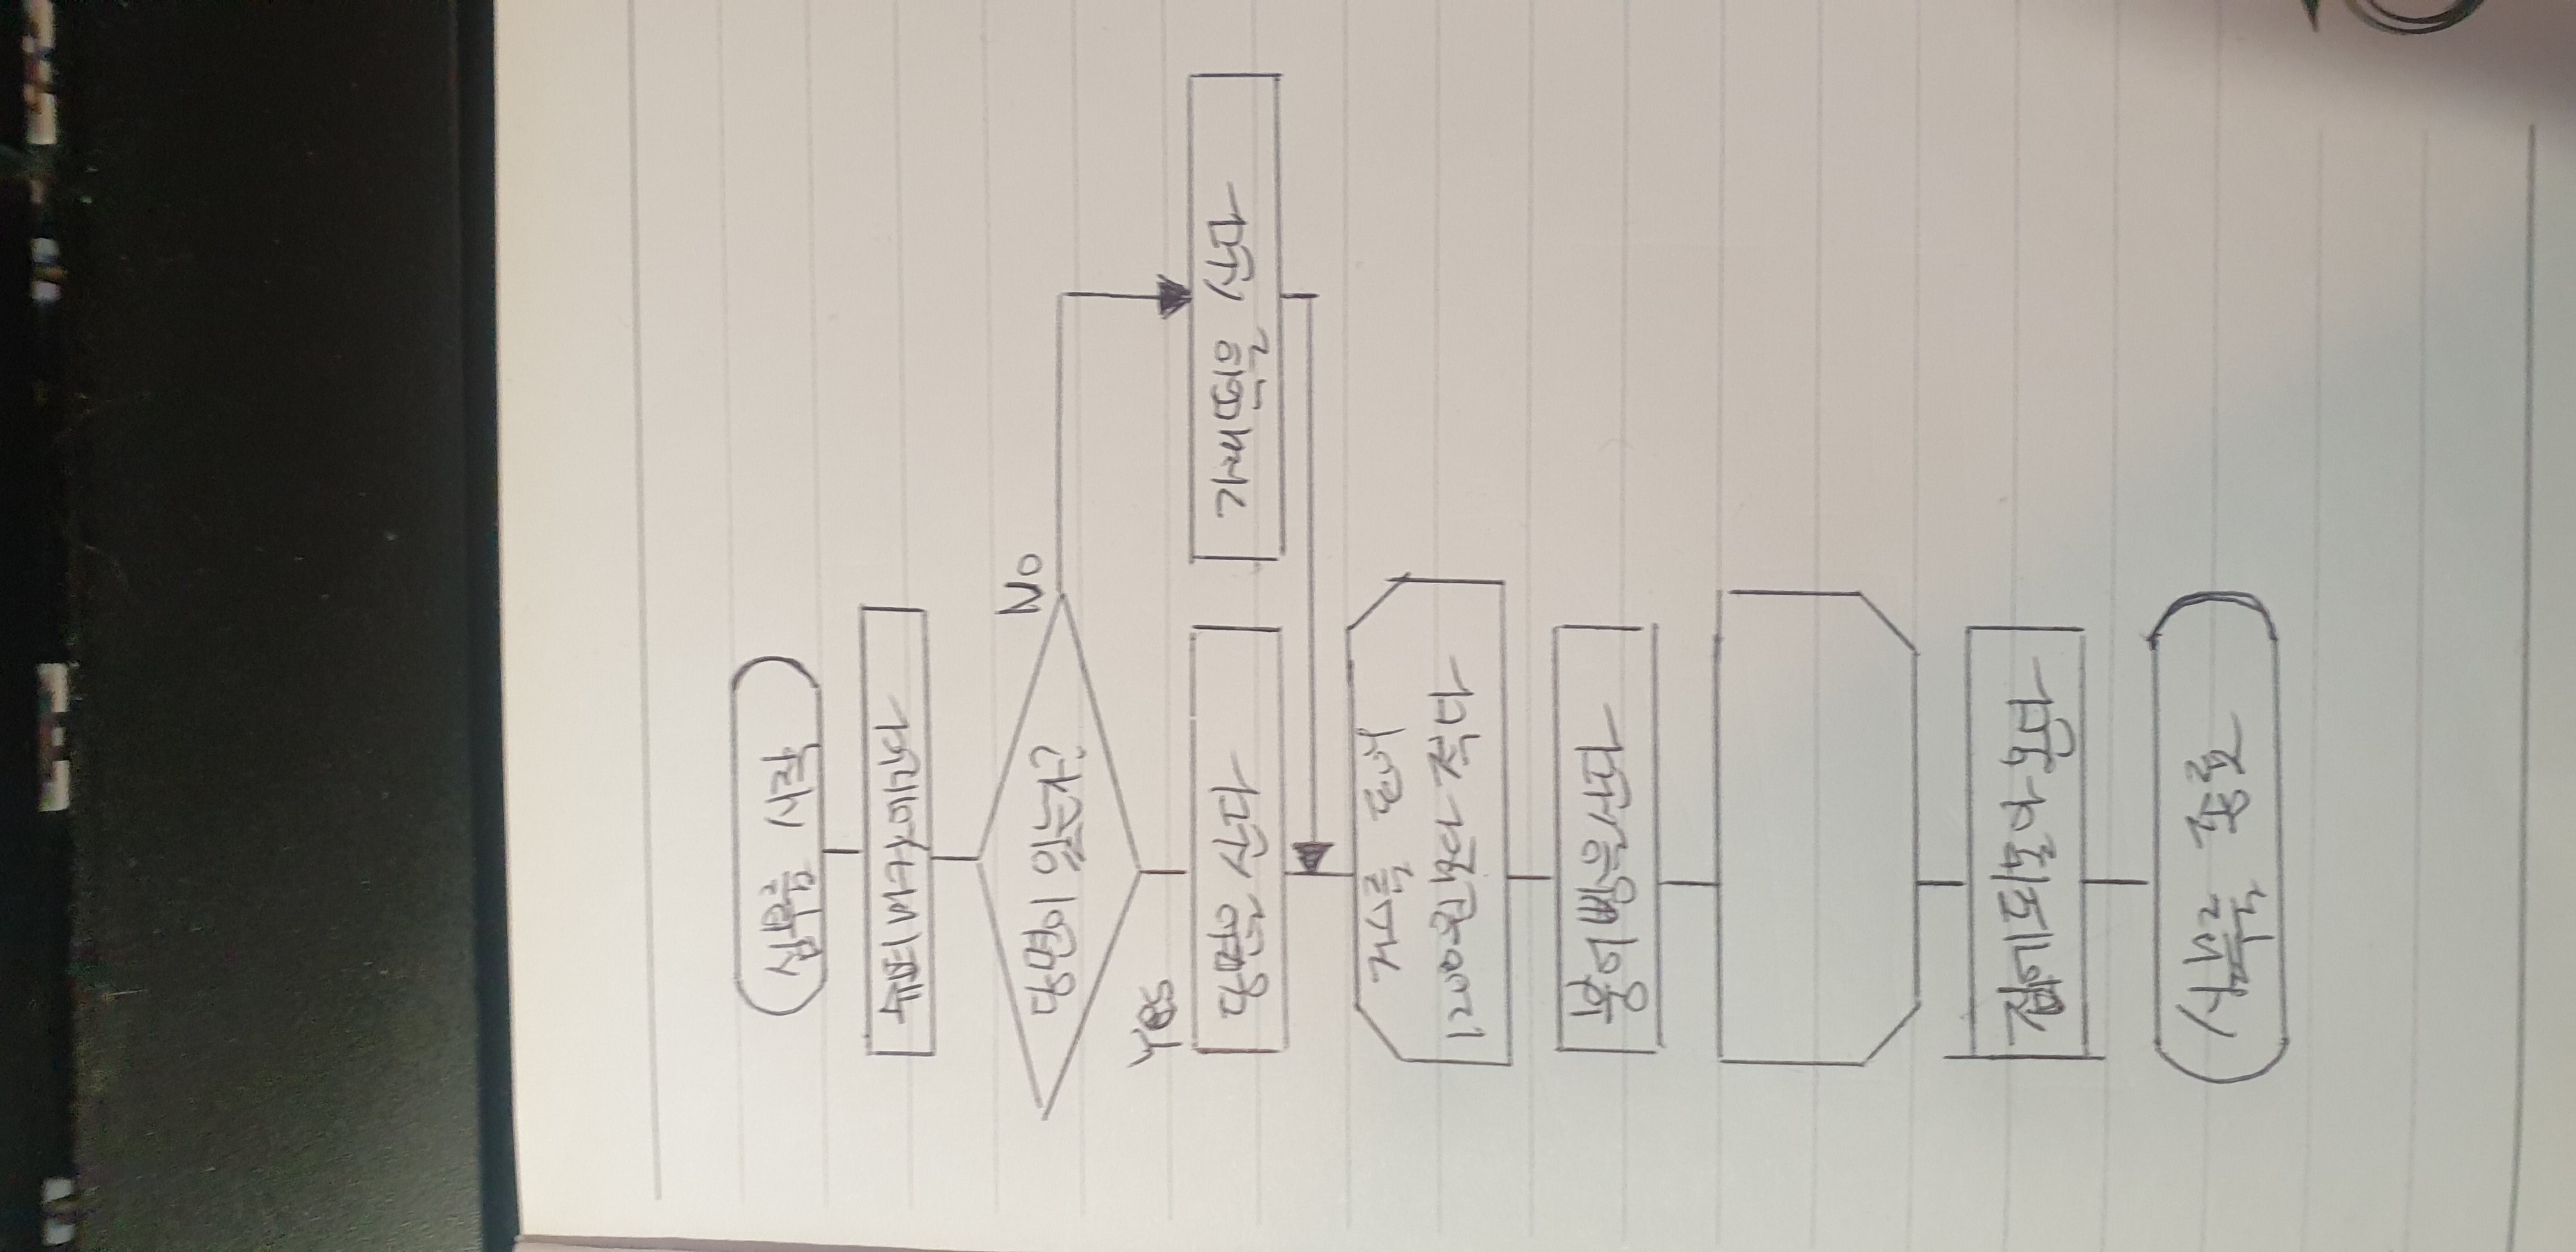 심부름 시작
슈퍼마켓에간다
당면이 있는가?
No
Yes
당면을 산다
가래떡을 산다
거스름 돈이
1200원보다 적다
붕어빵을산다
집에되돌아 온다
심부름 종료